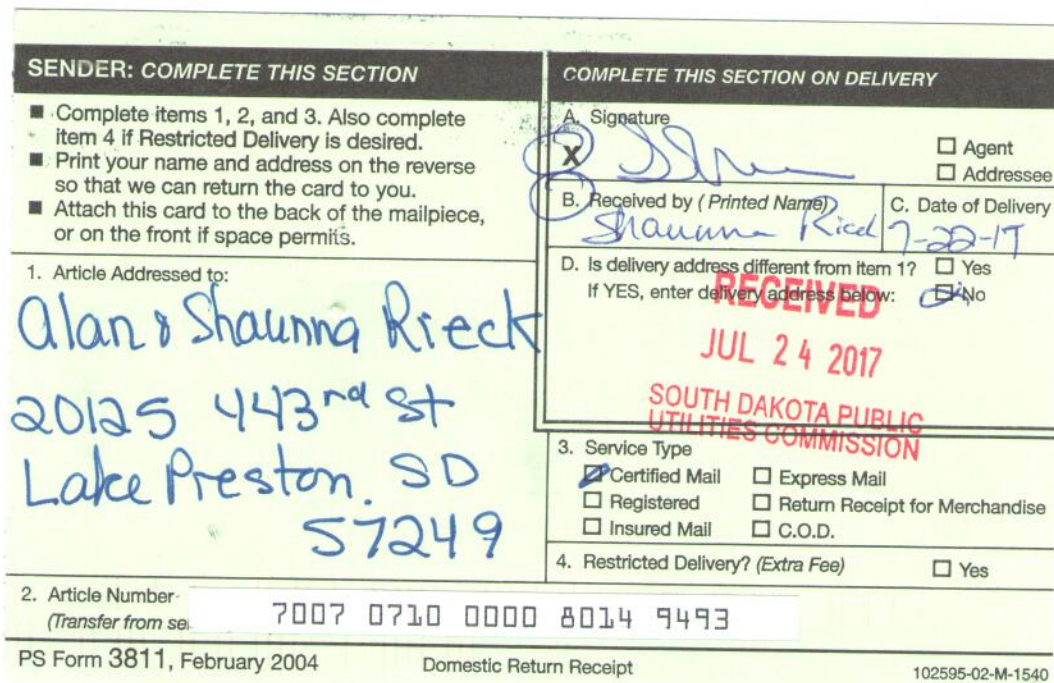 SENDER: COMPLETE THIS SECTION
■ Complete items 1, 2, and 3. Also complete
item 4 if Restricted Delivery is desired.
■ Print your name and address on the reverse
so that we can return the card to you.
■ Attach this card to the back of the mailpiece,
or on the front if space permits.
1. Article Addressed to:
Alan & Shaunna Rieck
20125 443rd St
Lake Preston. SD
57249
2. Article Number
(Transfer from se
7007 0710 0000 8014 9493
COMPLETE THIS SECTION ON DELIVERY
A. Signature
X
☐ Agent
☐ Addressee
B. Received by (Printed Name)
Shaunna Rieck
C. Date of Delivery
7-22-17
D. Is delivery address different from item 1? ☐ Yes
If YES, enter delivery address below: ☐ No
RECEIVED
JUL 24 2017
SOUTH DAKOTA PUBLIC
UTILITIES COMMISSION
3. Service Type
☑ Certified Mail ☐ Express Mail
☐ Registered ☐ Return Receipt for Merchandise
☐ Insured Mail ☐ C.O.D.
4. Restricted Delivery? (Extra Fee) ☐ Yes
PS Form 3811, February 2004 Domestic Return Receipt 102595-02-M-1540